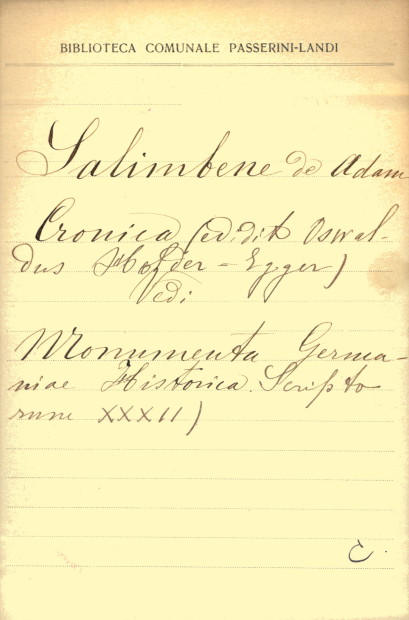 BIBLIOTECA COMUNALE PASSERINI-LANDI
Salimbene de Adam
Cronica (edidit Oswal-
dus Holder-Egger)
Vedi
Monumenta Germa-
niae Historica. Scripto
rum XXXII)
C.